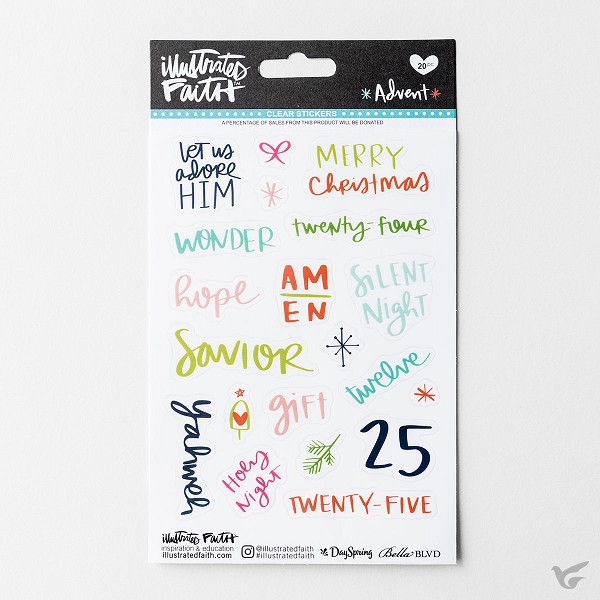 illustrated
FAITH
TM
20 PC
Advent
CLEAR STICKERS
A PERCENTAGE OF SALES FROM THIS PRODUCT WILL BE DONATED
let us
adore
HIM
MERRY
Christmas
WONDER
twenty-four
hope
AM
EN
SiLENT
Night
SAVIOR
twelve
Yahweh
gift
25
Holy
Night
TWENTY-FIVE
illustrated FAITH
inspiration & education
illustratedfaith.com
@illustratedfaith
#illustratedfaith
DaySpring
Bella BLVD